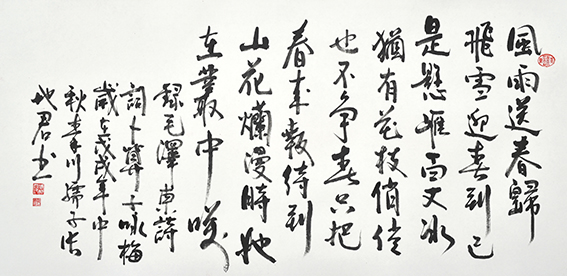 風雨送春歸
飛雪迎春到已
是懸崖百丈冰
猶有花枝俏俏
也不争春只把
春來報待到
山花爛漫時她
在叢中咲
錄毛澤東詩
詞卜算子咏梅
歲在戊戌年中
秋
君书